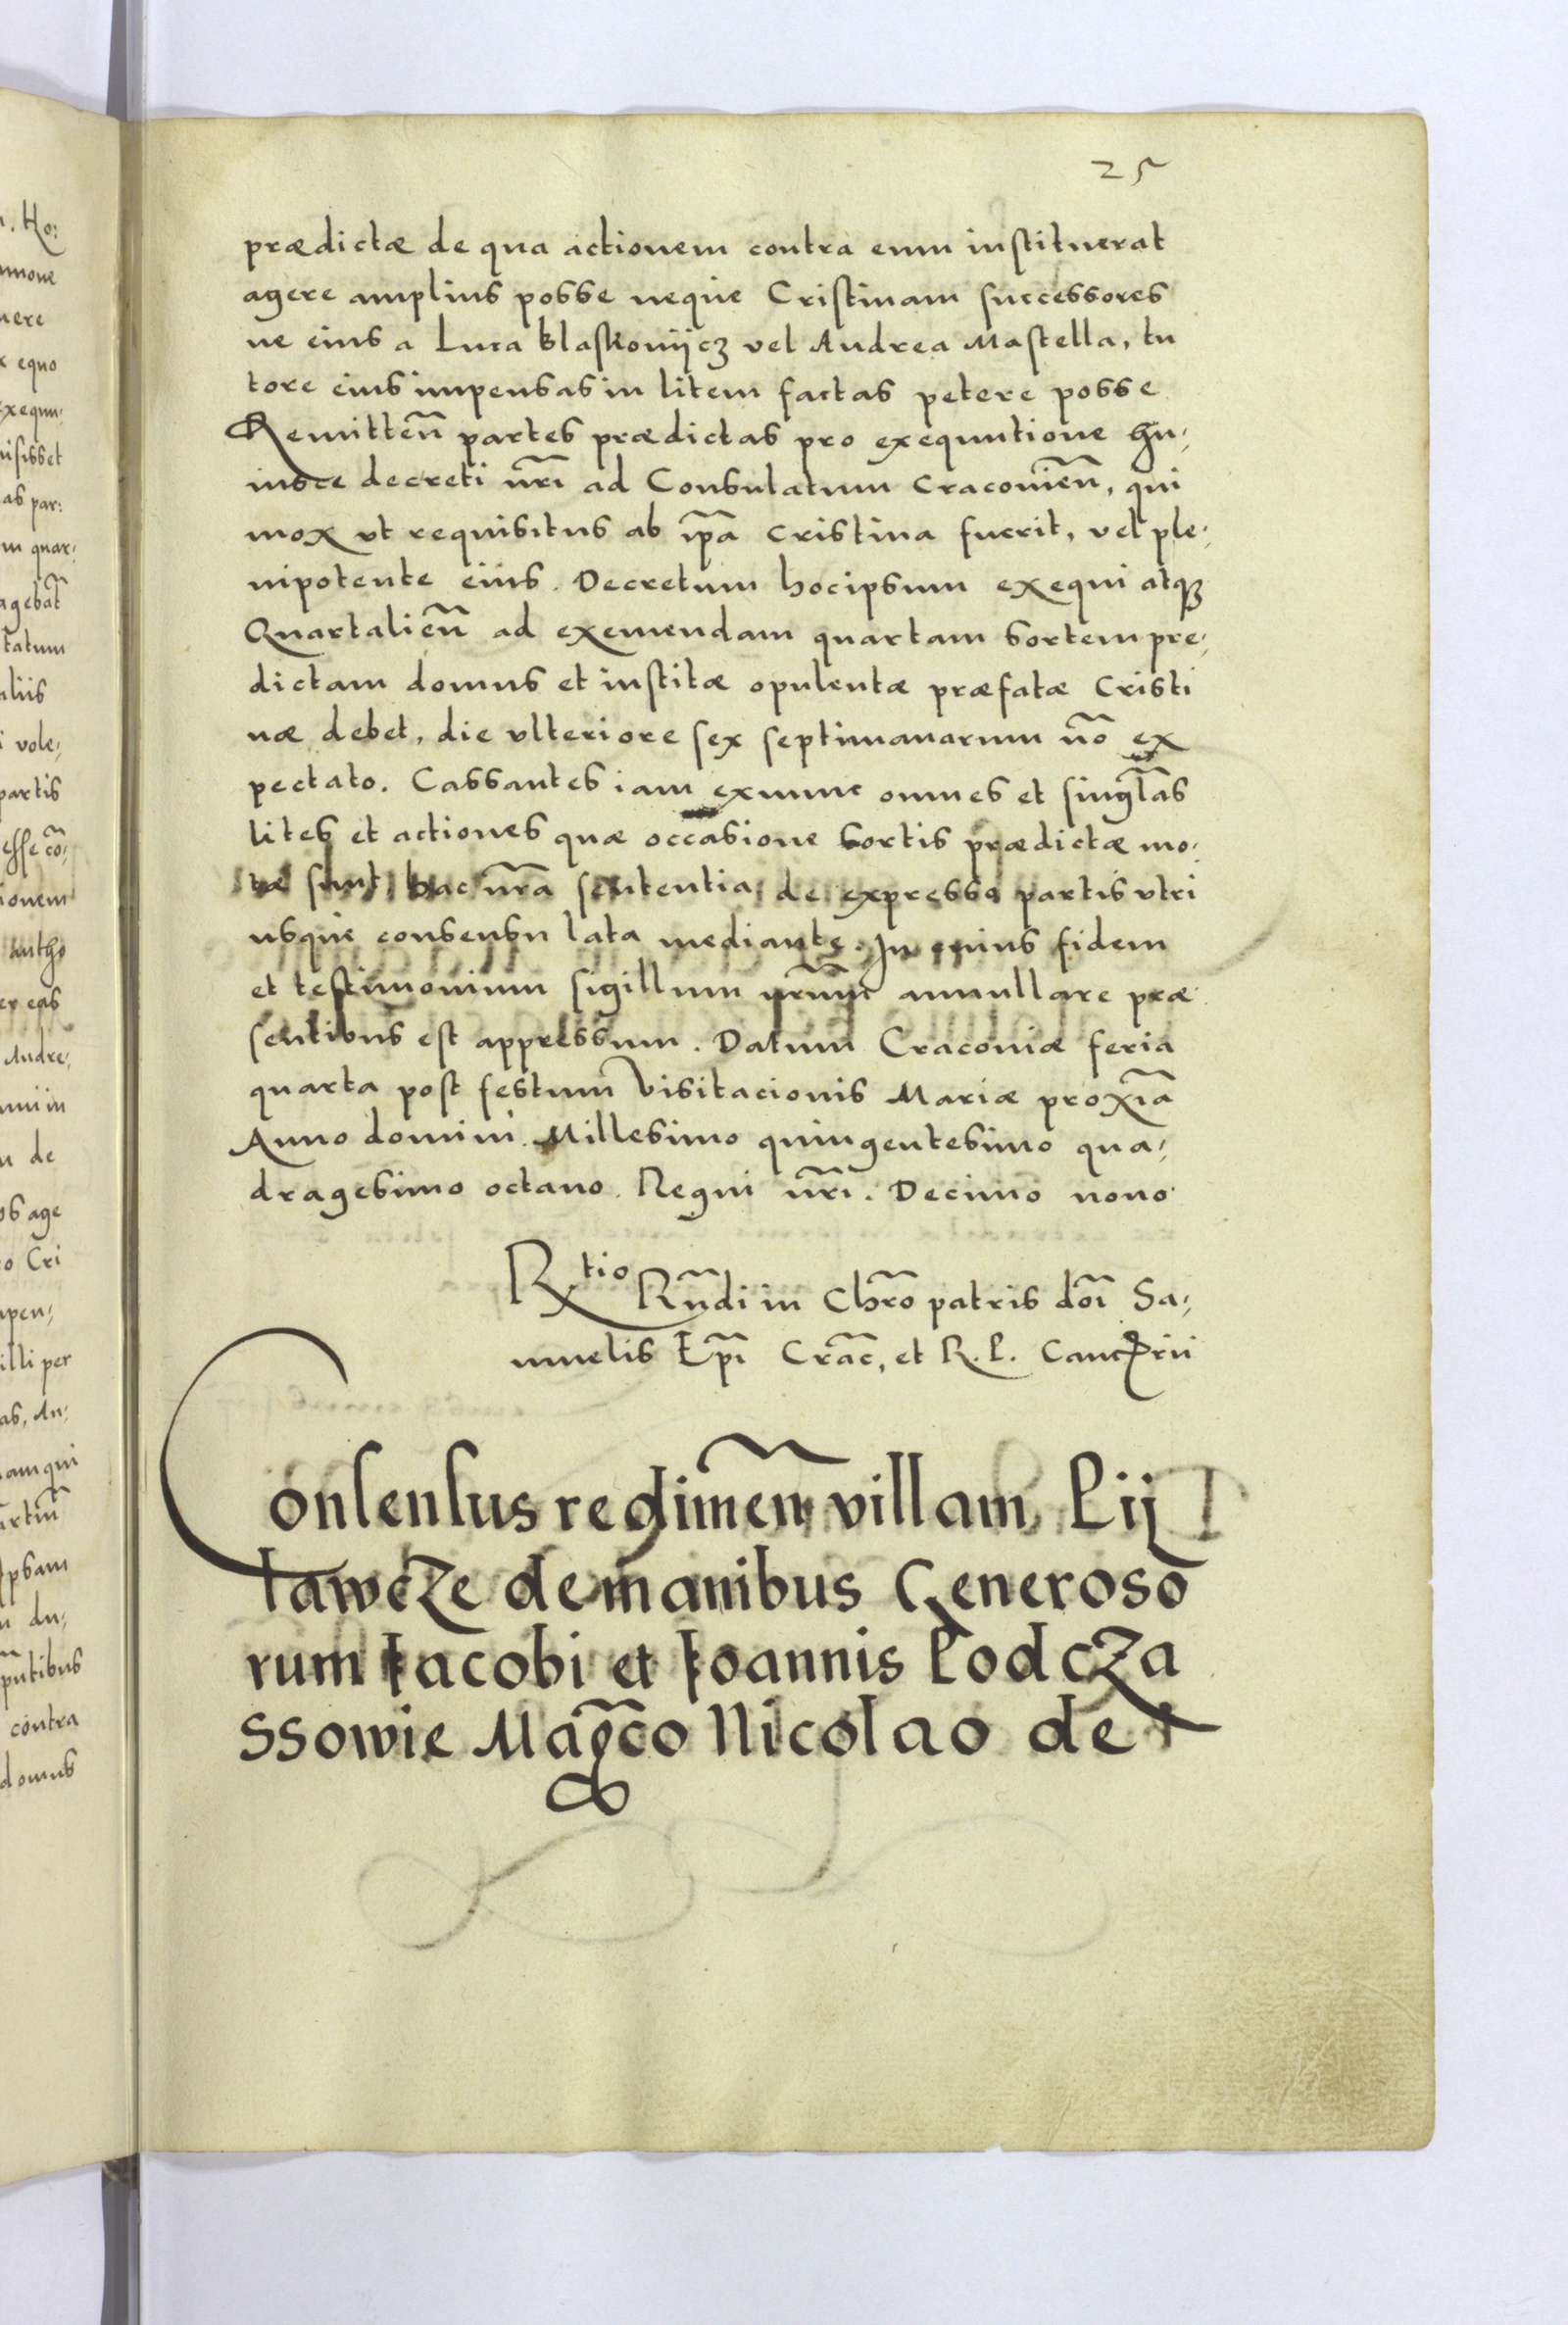 25
prædictæ de qua actionem contra eum instituerat
agere amplius posse neque Cristinam successores
ve eius a Luca Blaskowijcz vel Andrea Mastella, tu
tore eius impensas in litem factas petere posse
Remitteñ partes prædictas pro exequutione hu-
iusce decreti nr̃i ad Consulatum Cracovieñ, qui
mox vt requisitus ab ip̃a Cristina fuerit, vel ple-
nipotente eius. Decretum hocipsum exequi atqꝫ
Quartalieñ ad exemendam quartam sortem pre-
dictam domus et institæ opulentæ præfatæ Cristi
næ debet, die vlteriore sex septimanarum nõ ex
pectato. Cassantes iam exnunc omnes et singl̃as
lites et actiones quæ occasione sortis prædictæ mo-
tæ sunt hac nr̃a sententia de expresso partis vtri
usque consensu lata mediante. In cuius fidem
et testimonium sigillum nr̃um annullare præ
sentibus est appressum. Datum Cracoviæ feria
quarta post festum Visitacionis Mariæ proxĩa
Anno domini Millesimo quingentesimo qua-
dragesimo octavo. Regni nr̃i. Decimo nono
Rtio Rñdi in Chr̃o patris dõi Sa-
muelis Ep̃i Crac̃, et R. P. Cancꝓrii
Consensus redimeñ villam Lij
tawcze de manibus Generoso
rum Iacobi et Ioannis Podcza
ssowie Magc̃o Nicolao de
n. Ho:
mnone
nere
x equo
exequu-
misisset
as par:
m quar-
agebat̃
tatum
aliis
i vole-
partis
esse cõ-
ionem
Antho
er eas
Andre-
n de
os age
o Cri
mpen-
illi per
as, An-
am qui
ipsam
n du-
putibus
contra
domus